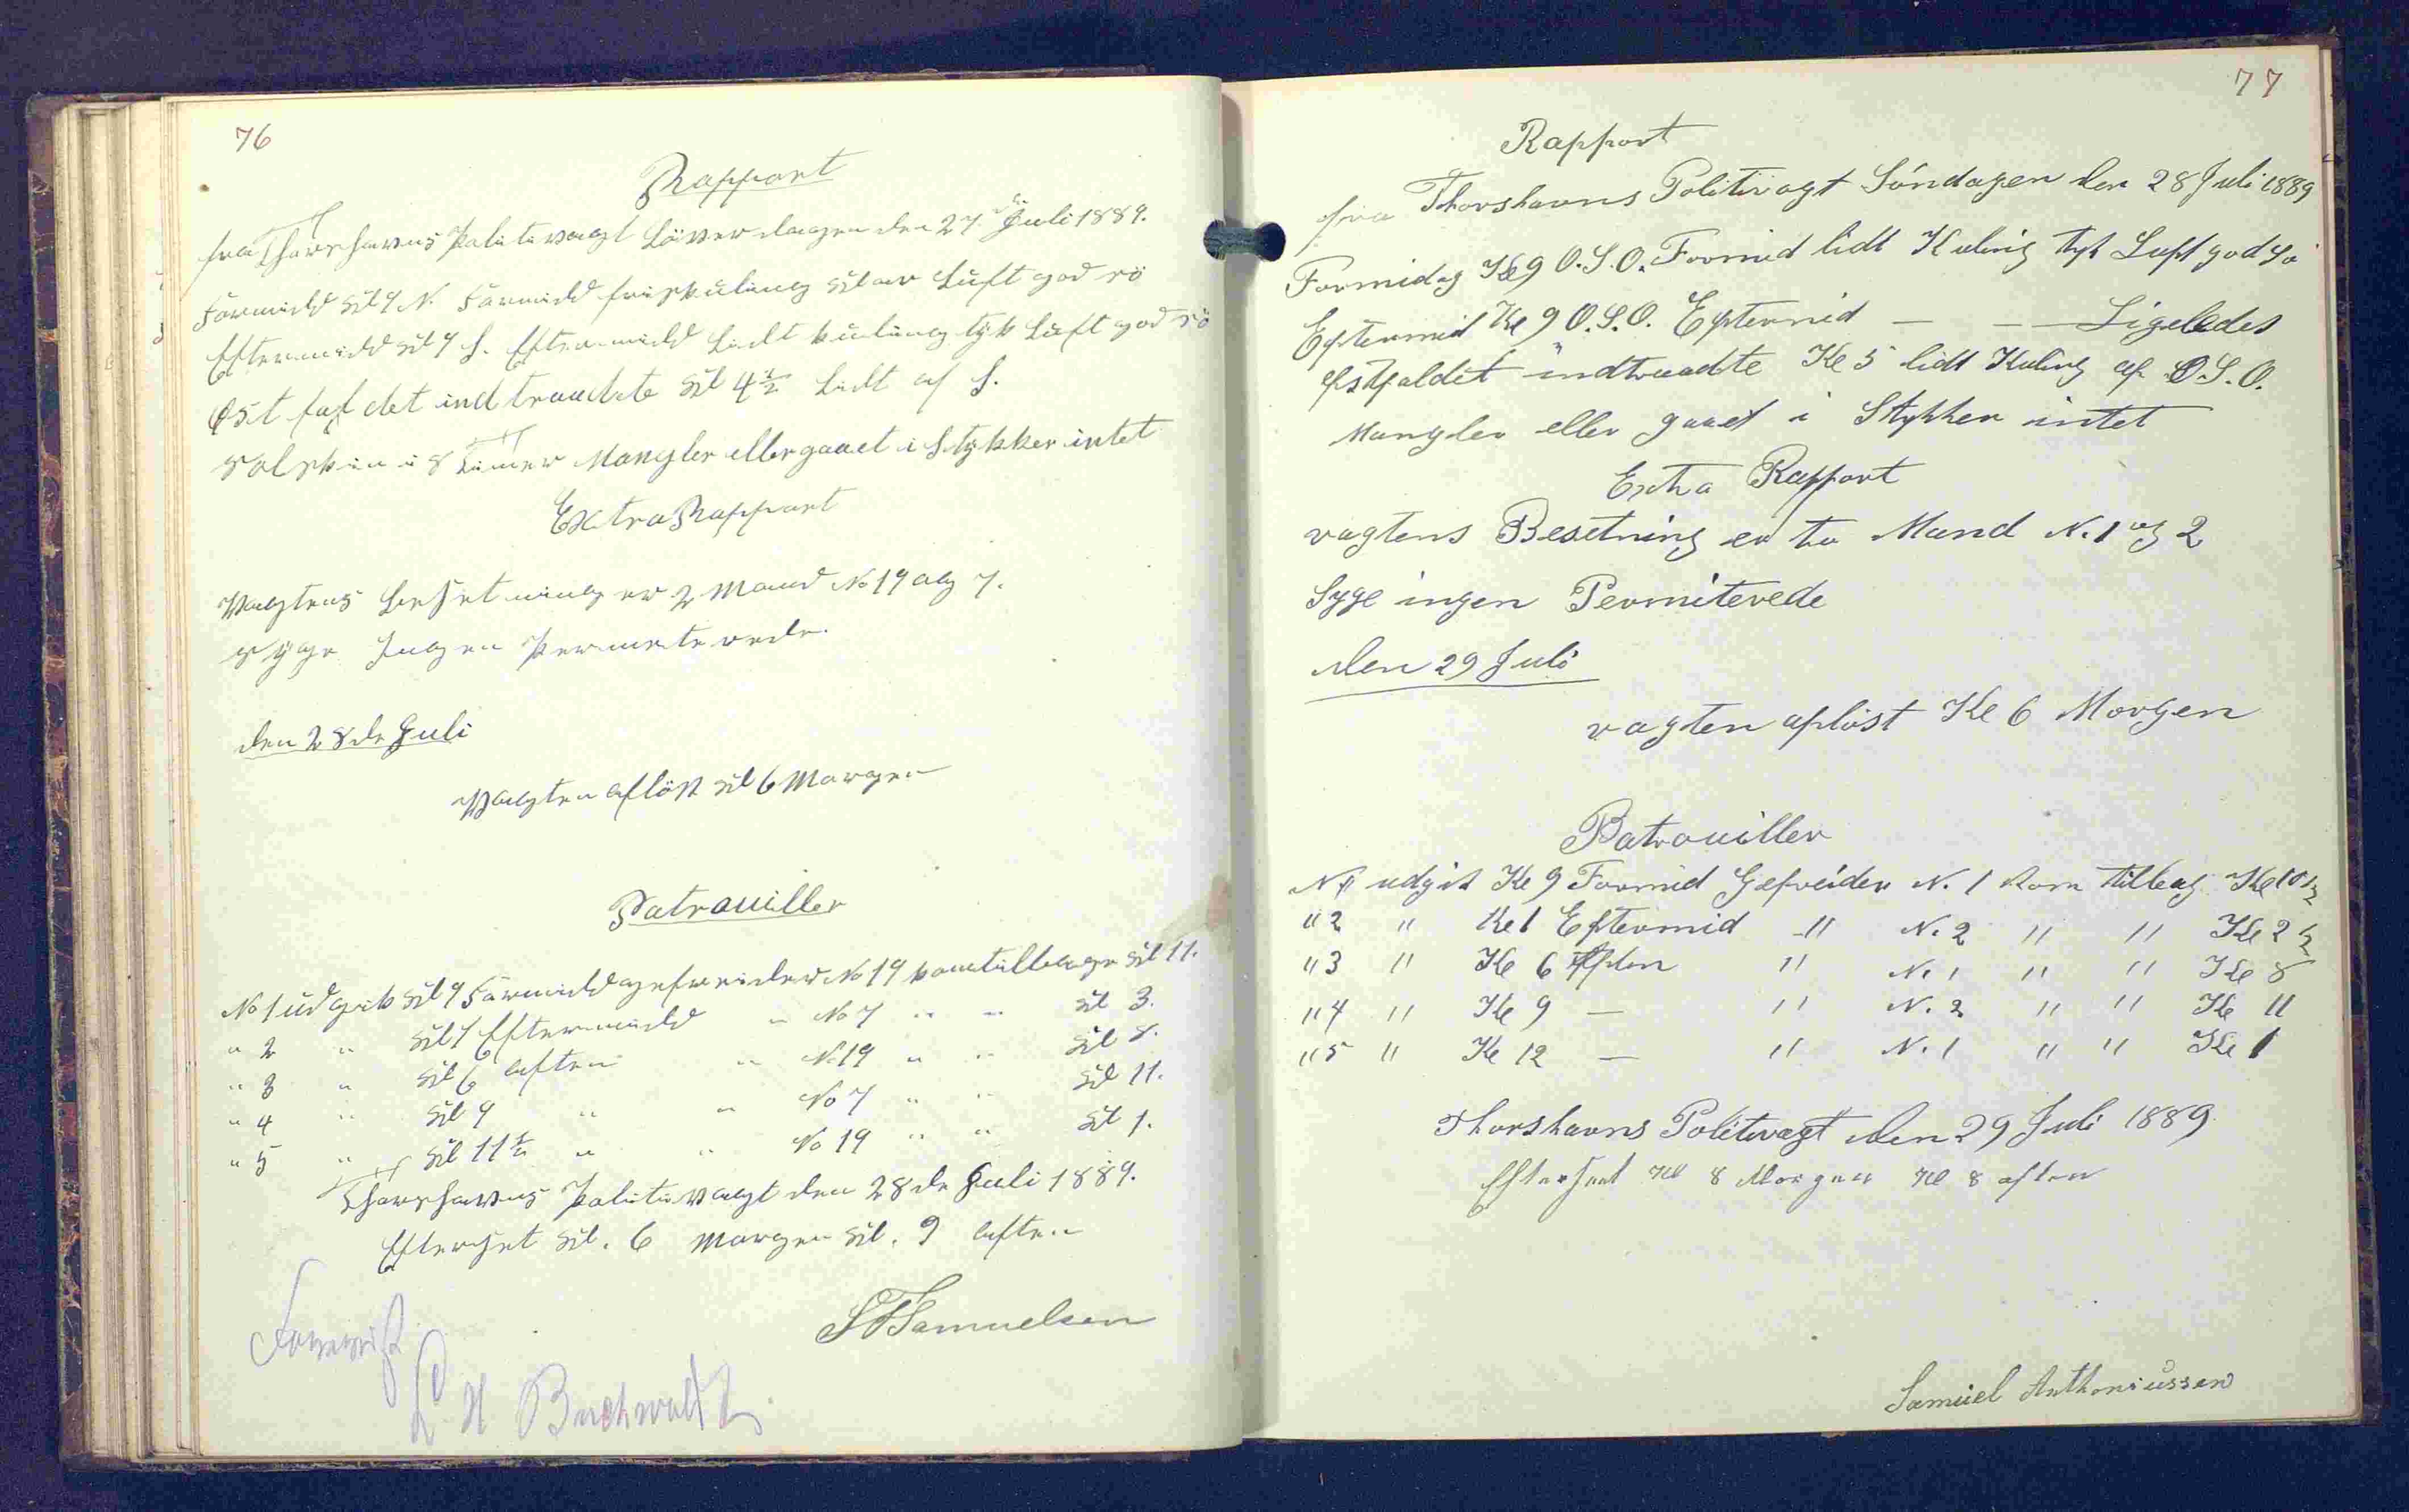 76
Rapport
fra Thorshavns Politivagt Löverdagen den 27de Juli 1889.
Formidd Kl 9 N. Formidd frisk Kuling klar Luft god sö
Eftermidd Kl 9 S. Eftermidd Lidt kuling tyk Luft god sö
Øst fal det indtraadte Kl 4½ Lidt af S.
Solskin i 8 Timer Mangler eller gaaet i Stykker intet
Extra Rapport
Vagtens Besetning er 2 Mand No 19 og 7.
Syge Ingen Permeterede.
den 28de Juli
Vagten aflöst Kl 6 Morgen
Patrouiller
No 1 udgik Kl 9 Formidd gefreider No 19 kom tilbage Kl 11.
" 2 " Kl 1 Eftermidd " No 7 " " Kl 3.
" 3 " Kl 6 Aften " No 19 " " Kl 8.
" 4 " Kl 9 " " No 7 " " Kl 11.
" 5 " Kl 11½ " " No 19 " " Kl 1.
Thorshavns Politivagt den 28de Juli 1889.
Efterset Kl. 6 Morgen Kl. 9 Aften
Samuelsen
Buchwaldt
77
Rapport
fra Thorshavns Politivagt Söndagen den 28 Juli 1889
Formidag Kl 9 O.S.O. Formid lidt Kuling tyk Luft god Sö
Eftermid Kl 9 O.S.O. Eftermid — — Ligeledes
Østfaldet indtraadte Kl 5 lidt Kuling af O.S.O.
Mangler eller gaaet i Stykker intet
Extra Rapport
vagtens Besetning er to Mand N. 1 og 2
Syge ingen Permiterede
den 29 Juli
vagten aflöst Kl 6 Morgen
Patrouiller
N 1 udgik Kl 9 Formid Gefreider N. 1 kom tilbag Kl 10½
" 2 " Kl 1 Eftermid " N. 2 " " Kl 2½
" 3 " Kl 6 Aften " N. 1 " " Kl 8
" 4 " Kl 9 — " N. 2 " " Kl 11
" 5 " Kl 12 — " N. 1 " " Kl 1
Thorshavns Politivagt den 29 Juli 1889
Efterset Kl 8 Morgen Kl 8 aften
Samúel Anthoniússen